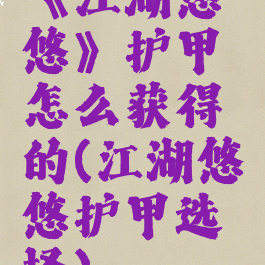 《江湖悠
悠》护甲
怎么获得
的(江湖悠
悠护甲选
择)